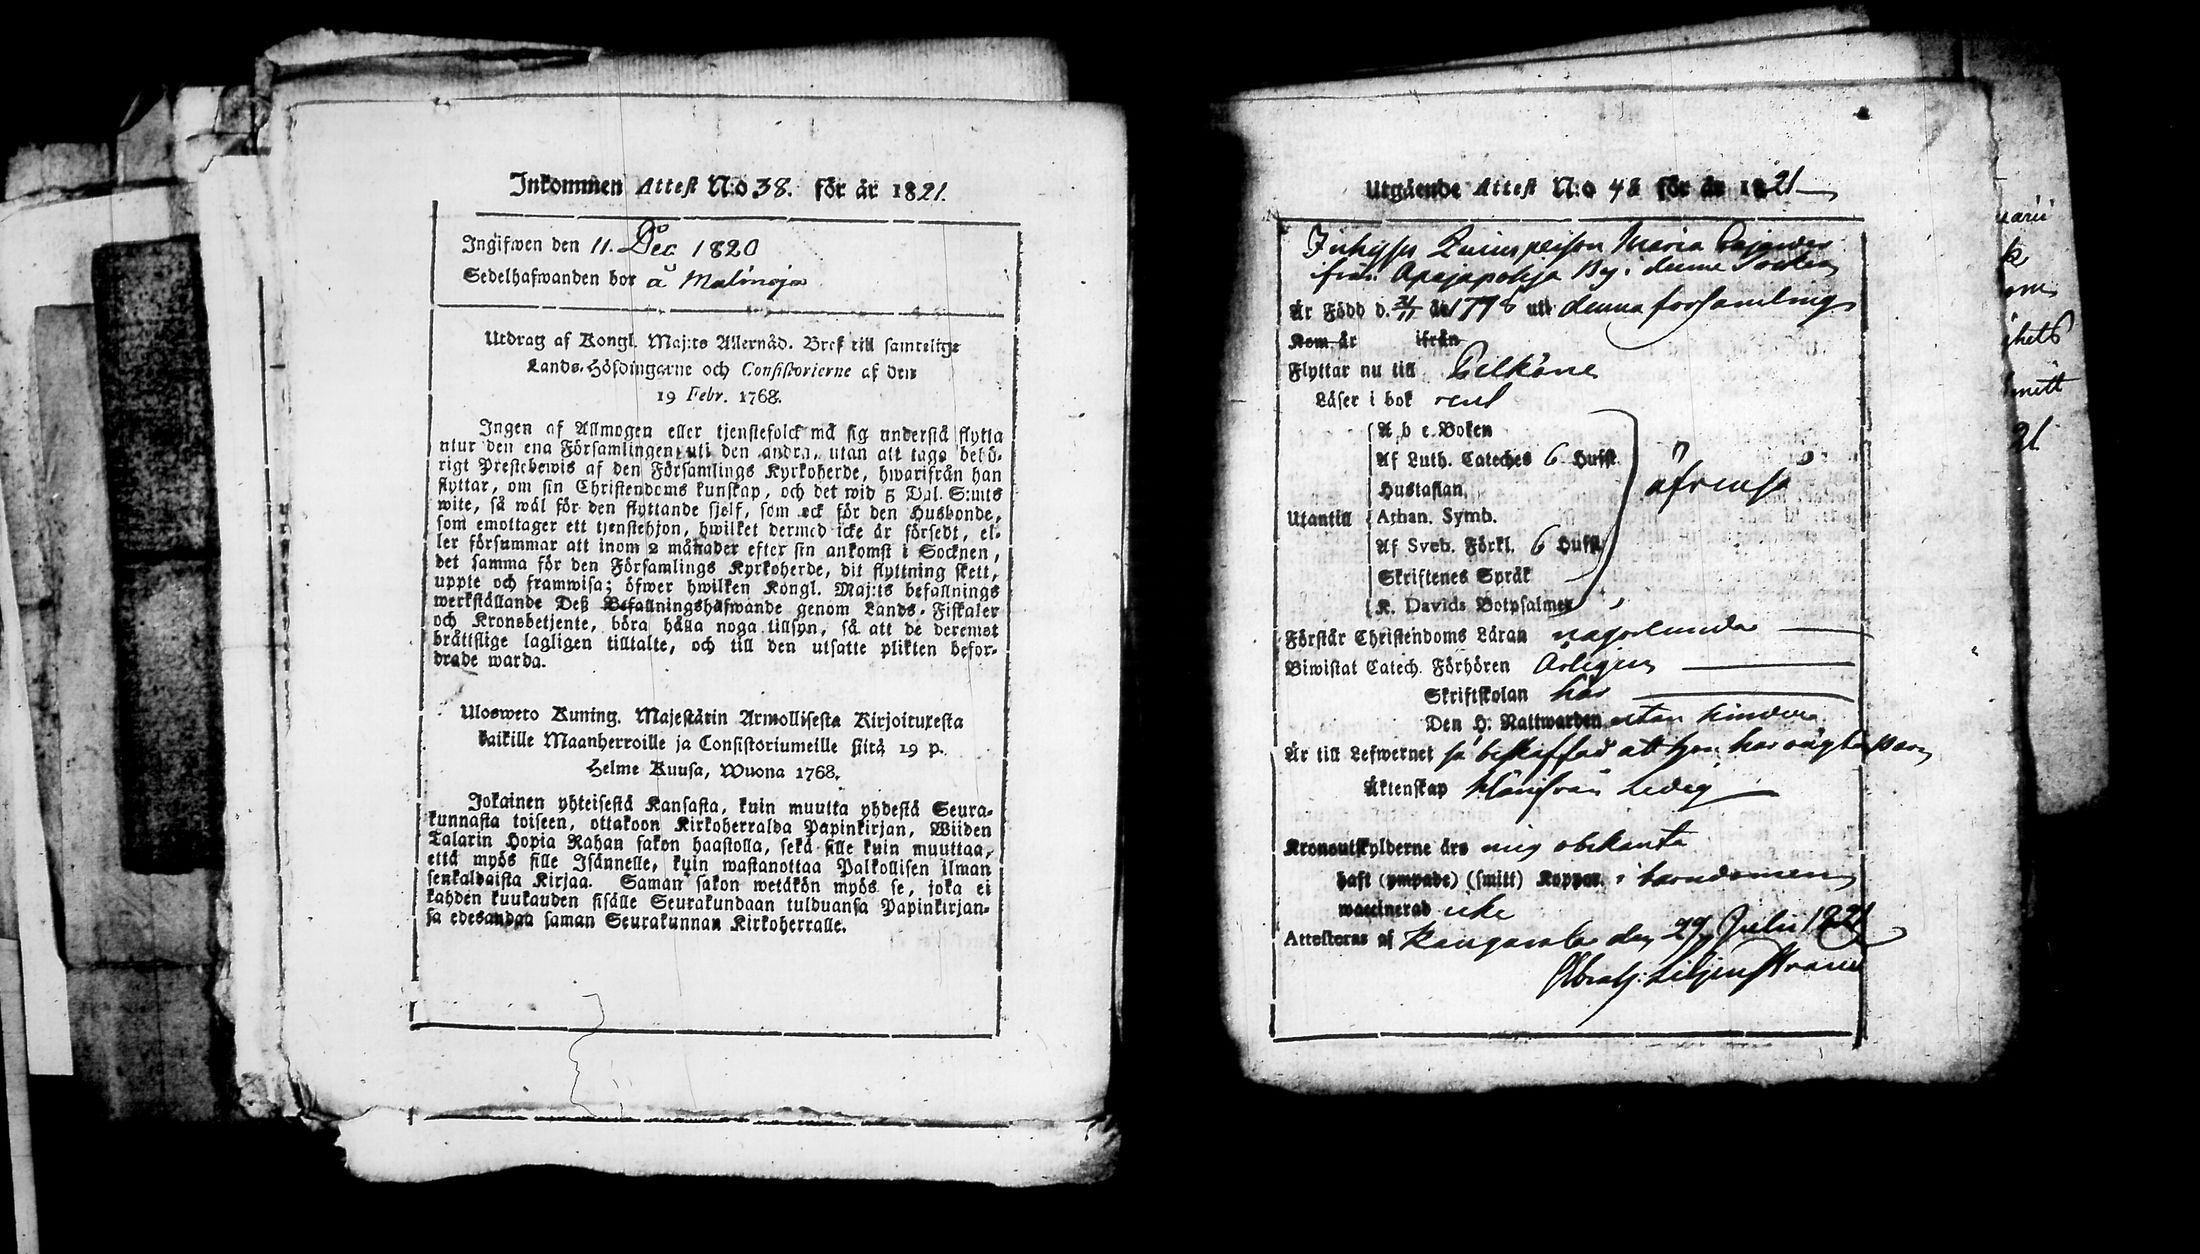 Inkommen Attest N:o 38. för år 1821.
Ingifwen den 11. Dec 1820
Sedelhafwanden bor å Malinoja
Utdrag af Kongl. Maj:ts Allernåd. Bref till samtelige
Lands-Höfdingarne och Consistorierne af den
19 Febr. 1768.
Ingen af Allmogen eller tjenstefolck må sig understå flytta
utur den ena Församlingen uti den andra, utan att taga behö-
rigt Prestebewis af den Församlings Kyrkoherde, hwarifrån han
flyttar, om sin Christendoms kunskap, och det wid 5 Dal. S:mts
wite, så wäl för den flyttande sjelf, som ock för den Husbonde,
som emottager ett tjenstehjon, hwilket dermed icke är försedt, el-
ler försummar att inom 2 månader efter sin ankomst i Socknen,
det samma för den Församlings Kyrkoherde, dit flyttning skett,
uppte och framwisa; öfwer hwilken Kongl. Maj:ts befallnings
werkställande Deß Befallningshafwande genom Lands-Fiskaler
och Kronobetjente, böra hålla noga tillsyn, så att de deremot
bråttslige lagligen tilltalte, och till den utsatte plikten befor-
drade warda.
Uloswcto Kuning. Majestätin Armollisesta Kirjoituxesta
kaikille Maanherroille ja Consistoriumeille siitä 19 p.
Helme Kuusa, Wuona 1768.
Jokainen yhteisestä Kansasta, kuin muutta yhdestä Seura-
kunnasta toiseen, ottakoon Kirkoherralda Papinkirjan, Wiiden
Talarin Hopia Rahan sakon haastolla, sekä sille kuin muuttaa,
että myös sille Isännelle, kuin wastanottaa Palkollisen ilman
senkaldaista Kirjaa. Saman sakon wetäkön myös se, joka ei
kahden kuukauden sisälle Seurakundaan tulduansa Papinkirjan-
sa edesandaa saman Seurakunnan Kirkoherralle.
Utgående Attest N:o 48 för år 1821
Maria
från Apajapohja By
Är Född d. 21/11 år 1798 uti denna församling
Kom år ifrån
Flyttar nu till Pelkäne
Läser i bok rent
A b c Boken
Af Luth. Cateches 6 Hufst.
Hustaflan,
Utantill Athan. Symb.
Af Sveb. Förkl. 6 Hufst.
Skriftenes Språk
K. Davids Botpsalmer
Förstår Christendoms Läran någorlunda
Biwistat Catech. Förhören Årligen
Skriftskolan här
Den H. Nattwarden utan hinder
Är till Lefwernet så beskaffad att hon har oägta Barn
Äktenskap härifrån Ledig
Kronoutskylderne äro mig obekanta
haft (ympade) (smitt) Koppor i barndomen
waccinerad icke
Attesteras af Kangasala den 29 Julii 1821